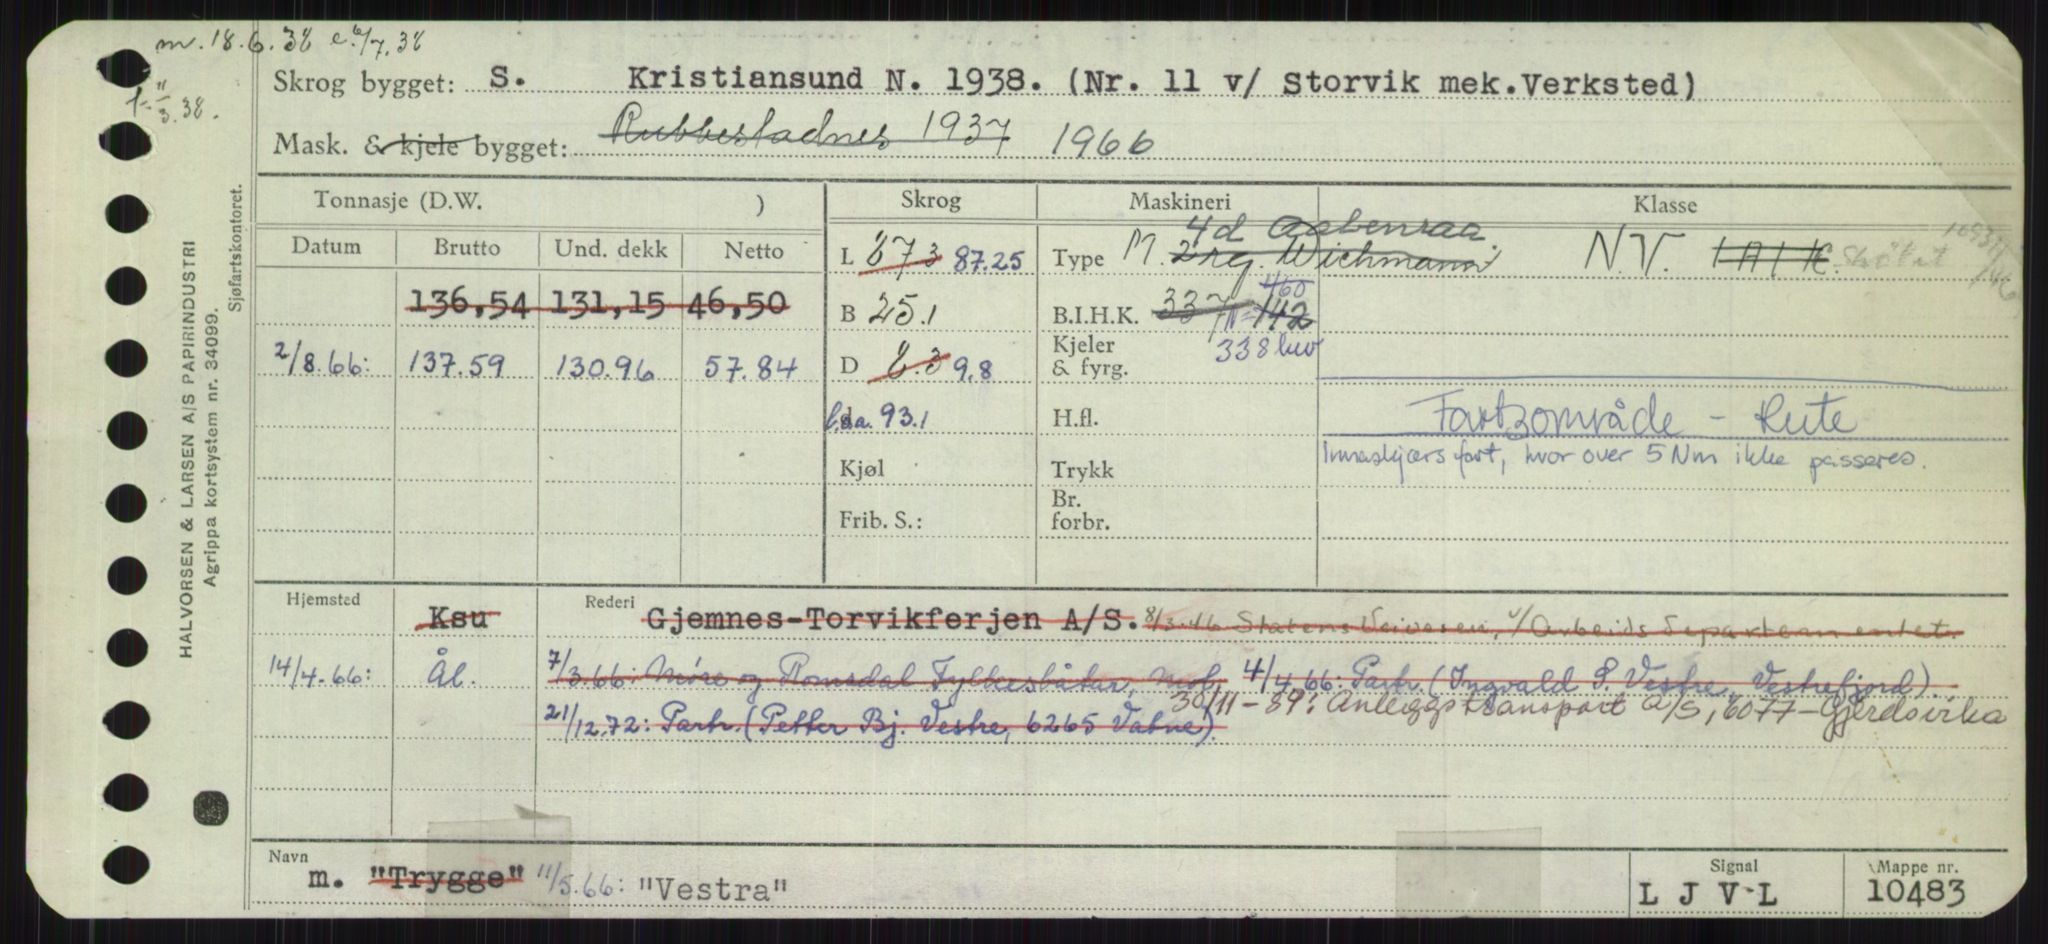 m. 18.6.38 e. 6/7.38
1. 11/3.38.
Skrog bygget: S. Kristiansund N. 1938. (Nr. 11 v/ Storvik mek.Verksted)
Mask. & kjele bygget: Rubbestadnes 1937 1966
Tonnasje (D.W. ) Skrog Maskineri Klasse
Datum Brutto Und. dekk Netto
L 87.3 87.25 Type M. 2 reg. Wichmann 4d Aabenraa N.V. 1A1K. Sløkt
136,54 131,15 46,50
B 25.1 B.I.H.K. 337 N= 142 460
2/8.66: 137.59 130.96 57.84
D 8.3 9.8 Kjeler & fyrg. 338 luv
l.o.a. 93.1 H.fl. Fartsområde - Rute
Kjøl Trykk Innaskjærs fart, hvor over 5 Nm ikke passeres.
Frib. S.: Br. forbr.
Hjemsted Ksu Rederi Gjemnes-Torvikferjen A/S. 8/3.46 Statens Veivesen, v/ Arbeidsdepartementet.
14/4.66: Ål. 7/3.66: Møre og Romsdal Fylkesbåtar, Mol. 4/4.66: Partr. (Ingvald P. Vestre, Vestrefjord).
21/12.72: Partr. (Petter Bj. Vestre, 6265 Vatne). 30/11-89: Anleggstransport A/S, 6077-Gjerdsvika
Navn m. "Trygge" 11/5.66: "Vestra" Signal L J V L Mappe nr. 10483
HALVORSEN & LARSEN A/S PAPIRINDUSTRI
Agrippa kortsystem nr. 34099.
Sjøfartskontoret.